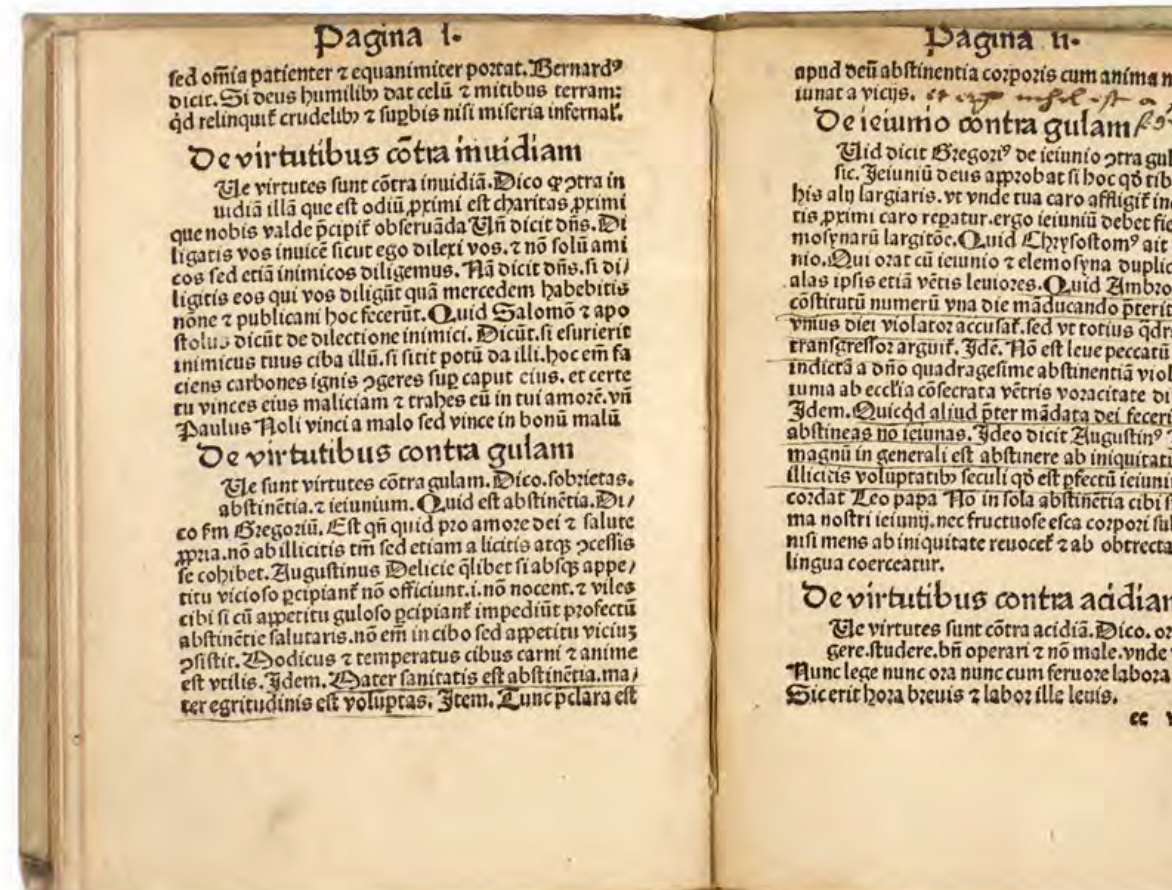 Pagina l.
sed om̄ia patienter ⁊ equanimiter portat. Bernardꝰ
dicit. Si deus humilibꝫ dat celū ⁊ mitibus terram:
qd̄ relinquit᷑ crudelibꝫ ⁊ suꝑbis nisi miseria infernal᷑.
De virtutibus cōtra inuidiam
Ue virtutes sunt cōtra inuidiā. Dico ꝙ ꝯtra in
uidiā illā que est odiū ꝓximi est charitas ꝓximi
que nobis valde p̄cipit᷑ obseruāda Un̄ dicit dn̄s. Di
ligatis vos inuicē sicut ego dilexi vos. ⁊ nō solū ami
cos sed etiā inimicos diligemus. Nā dicit dn̄s. si di/
ligitis eos qui vos diligūt quā mercedem habebitis
nōne ⁊ publicani hoc fecerūt. Quid Salomō ⁊ apo
stolus dicūt de dilectione inimici. Dicūt. si esurierit
inimicus tuus ciba illū. si sitit potū da illi. hoc em̄ fa
ciens carbones ignis ꝯgeres suꝑ caput eius. et certe
tu vinces eius maliciam ⁊ trahes eū in tui amorē. vn̄
Paulus Noli vinci a malo sed vince in bonū malū
De virtutibus contra gulam
Ue sunt virtutes cōtra gulam. Dico. sobrietas.
abstinētia. ⁊ ieiunium. Quid est abstinētia. Di/
co s̄m Gregoriū. Est qn̄ quid pro amore dei ⁊ salute
ꝓpria. nō ab illicitis tm̄ sed etiam a licitis atqꝫ ꝯcessis
se cohibet. Augustinus Delicie q̄libet si absqꝫ appe/
titu vicioso ꝑcipiant᷑ nō officiunt. i. nō nocent. ⁊ viles
cibi si cū appetitu guloso ꝑcipiant᷑ impediūt profectū
abstinētie salutaris. nō em̄ in cibo sed appetitu viciuꝫ
ꝯsistit. Modicus ⁊ temperatus cibus carni ⁊ anime
est vtilis. Idem. Mater sanitatis est abstinētia. ma/
ter egritudinis est voluptas. Item. Tunc p̄clara est
Pagina ii.
apud deū abstinentia corporis cum anima
iunat a vicijs. et ergo nihil est a
De ieiunio contra gulam
Uid dicit Gregoriꝰ de ieiunio ꝯtra
sic. Ieiuniū deus approbat si hoc qd̄
his alij largiaris. vt vnde tua caro affligit᷑
tis ꝓximi caro repatur. ergo ieiuniū debet
mosynarū largitōe. Quid Chrysostomꝰ ait
nio. Qui orat cū ieiunio ⁊ elemosyna
alas ipsis etiā vētis leuiores. Quid
cōstitutū numerū vna die māducando p̄terit
vnius diei violator accusat᷑. sed vt totius
transgressor arguit᷑. Idē. Nō est leue peccatū
indictā a dn̄o quadragesime abstinentiā
iunia ab eccl̄ia cōsecrata vētris voracitate
Idem. Quicqd̄ aliud p̄ter mādata dei
abstineas nō ieiunas. Ideo dicit Augustinꝰ
magnū in generali est abstinere ab
illicitis voluptatibꝫ seculi qd̄ est ꝑfectū
cordat Leo papa Nō in sola abstinētia cibi
ma nostri ieiunij. nec fructuose esca corpori
nisi mens ab iniquitate reuocet᷑ ⁊ ab
lingua coerceatur.
De virtutibus contra
Ue virtutes sunt cōtra acidiā. Dico.
gere. studere. bn̄ operari ⁊ nō male. vnde
Nunc lege nunc ora nunc cum feruore labora
Sic erit hora breuis ⁊ labor ille leuis.
cc